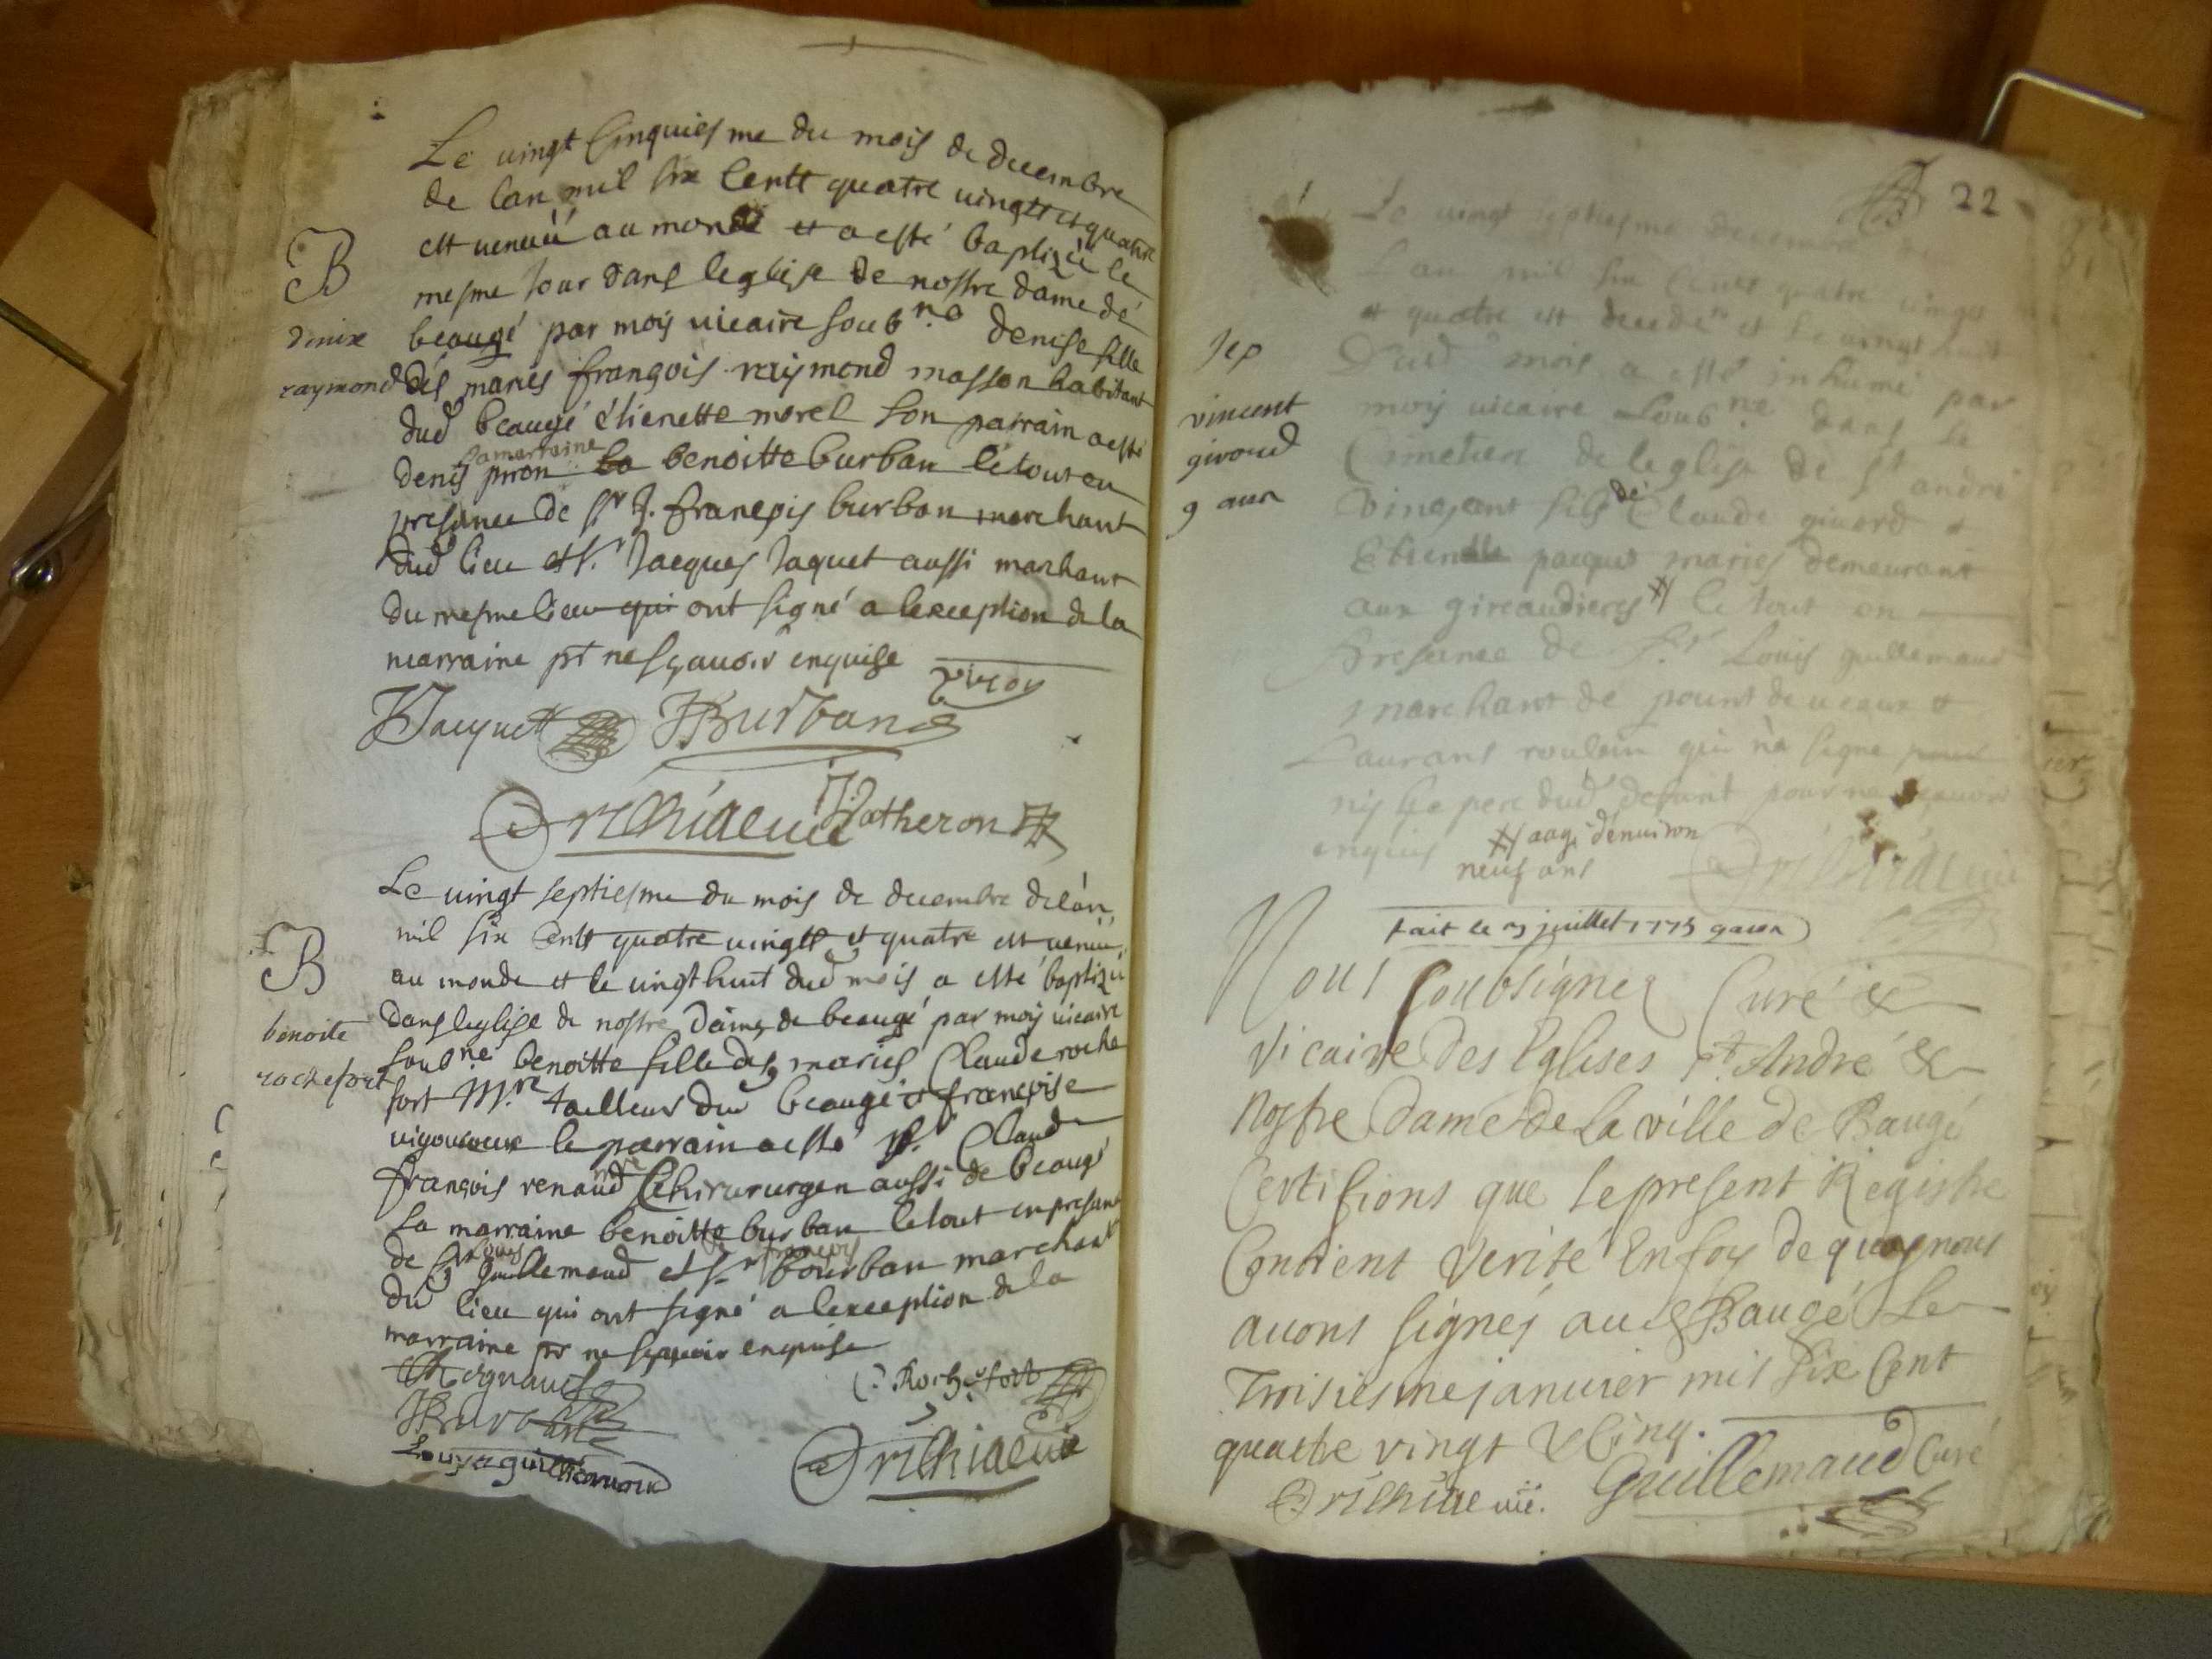 Le vingt cinquiesme du mois de decembre
de lan mil six centt quatre vingtt et quatre
est venuë au monde et a esté baptizèè le
mesme jour dans leglise de nostre dame de
B
denise
raymond
beaugé par moy vicaire soubne denise fille
des mariés françois raymond masson habitant
dud beaugé étienette morel son parrain a esté
denis piron la marraine benoitte burban le tout en
presance de sr J. françois burban marchant
dud lieu et sr Jacques Jaquet aussi marchant
du mesme lieu qui ont signé a lexception de la
marraine pr ne sçavoir enquise
piron
Jacquet Burban
vic Patheron
Le vingt septiesme du mois de decembre de lan
mil six centt quatre vingtt et quatre est venuë
B
benoite
rochefort
au monde et le vingt huit dud mois a esté baptizé
dans leglise de nostre dame de beaugé par moy vicaire
soubne benoitte fille des mariés Claude roche
fort Mre tailleur dud beaugé et françoise
le parrain a esté sr Claude
françois renaud Chirururgen aussi de beaugé
la marraine benoitte burban le tout en presant
de sr Louis guillemaud et sr françois bourban marchant
dud lieu qui ont signé a lexception de la
marraine pr ne sçavoir enquise
C. Rochefort
Burban
Louys guillemaud
22
Le vingt septiesme decembre
lan mil six centt quatre vingt
et quatre est decedé et le vingt huit
Sep
vincent
giroud
9 ans
dud mois a esté inhumé par
moy vicaire soubne dans le
Cimetiere de leglise de st andré
Vincent fils de Claude giroud et
Etienette paquet mariés demeurant
aux giraudieres # le tout en
presance de sr Louis guillemaud
marchant de pount de veaux et
Laurant qui n'a signé
ny le pere dud defunt pour ne sçavoir
enquis
# aagé denuiron
neuf ans
fait le juillet 1775
Nous soubsignez Curé &
Vicaire des Eglises st. André &
Nostre Dame de la ville de Baugé
Certifions que le present Registre
Contient Verité En foy de quoy nous
auons signés aud Baugé Le
Troisiesme januier mil six Cent
quatre vingt & Cinq.
vic. Guillemaud Curé